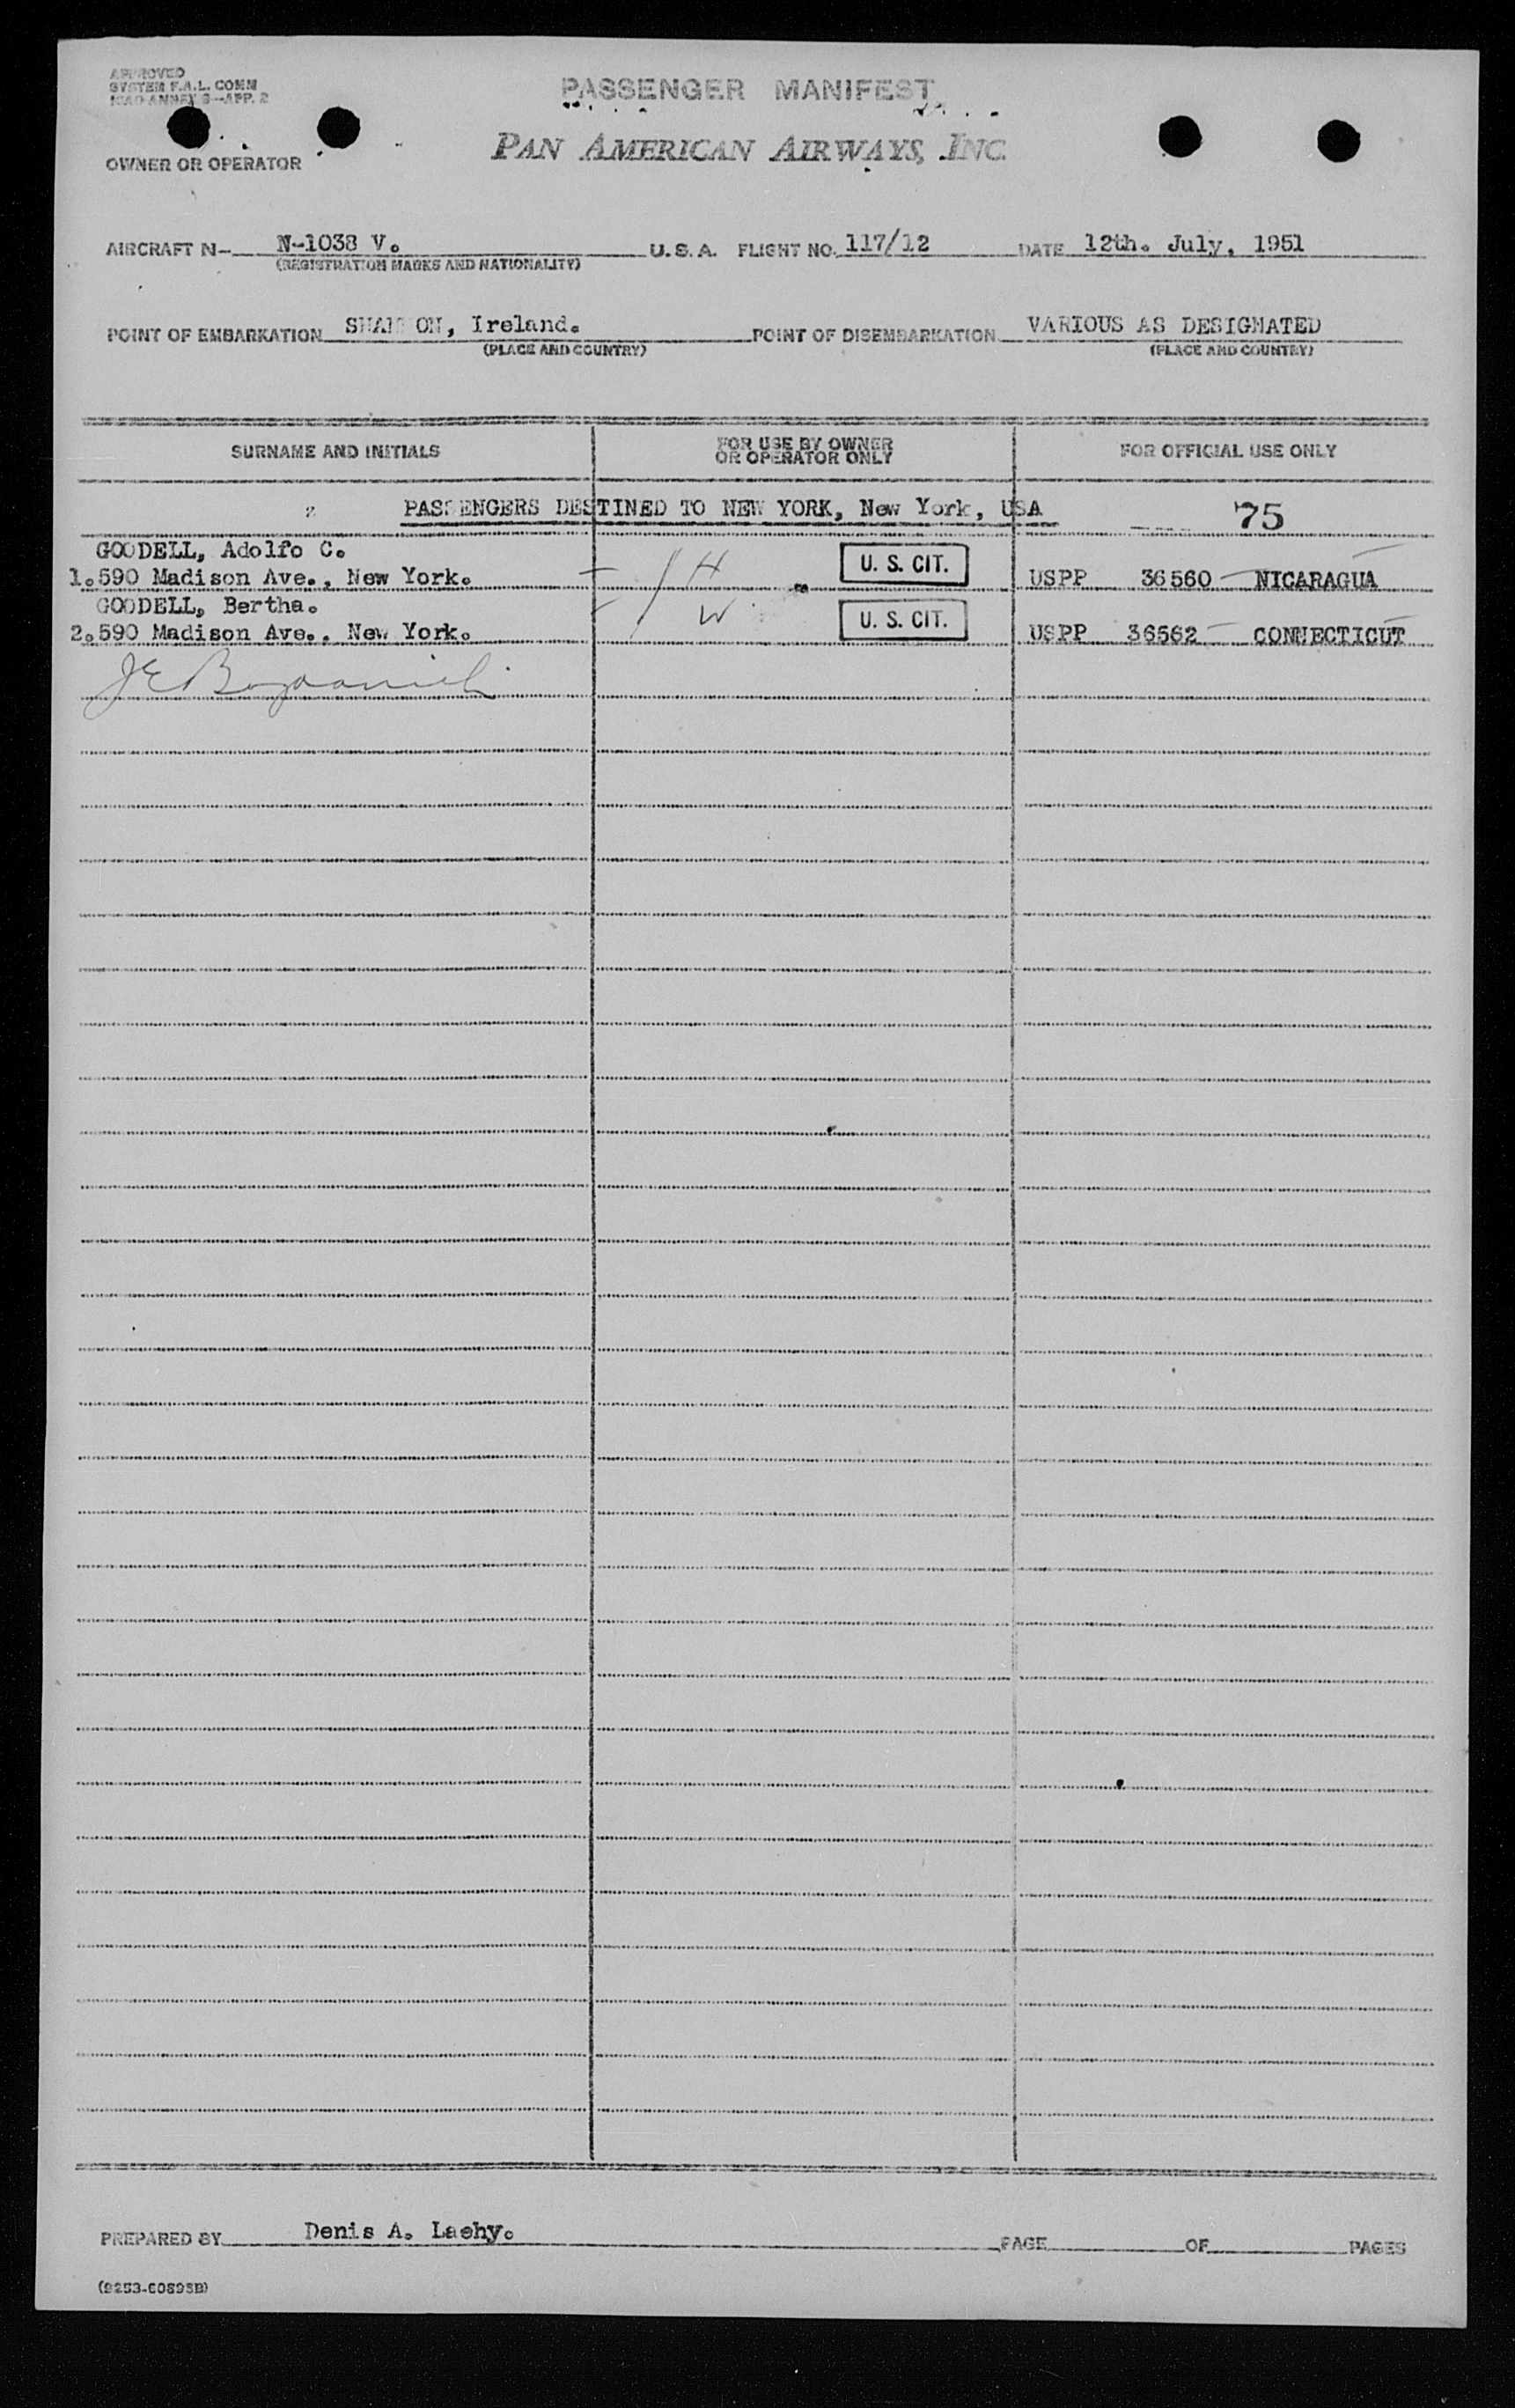 APPROVED
SYSTEM F.A.L. COMM
ICAO ANNEX 9--APP. 2
PASSENGER MANIFEST
PAN AMERICAN AIRWAYS, INC.
OWNER OR OPERATOR
AIRCRAFT N- N-1038 V. U.S.A. FLIGHT NO. 117/12 DATE 12th. July, 1951
(REGISTRATION MARKS AND NATIONALITY)
POINT OF EMBARKATION SHANNON, Ireland. POINT OF DISEMBARKATION VARIOUS AS DESIGNATED
(PLACE AND COUNTRY) (PLACE AND COUNTRY)
SURNAME AND INITIALS FOR USE BY OWNER OR OPERATOR ONLY FOR OFFICIAL USE ONLY
PASSENGERS DESTINED TO NEW YORK, New York, USA 75
GOODELL, Adolfo C.
1. 590 Madison Ave., New York. H U. S. CIT. USPP 36560 NICARAGUA
GOODELL, Bertha.
2. 590 Madison Ave., New York. W U. S. CIT. USPP 36562 CONNECTICUT
PREPARED BY Denis A. Laehy. PAGE OF PAGES